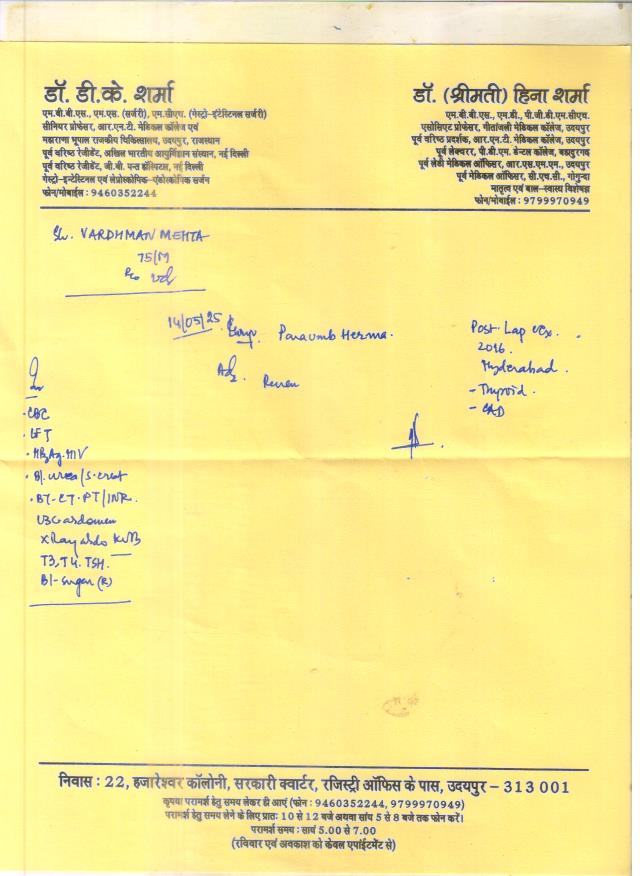 डॉ. डी.के. शर्मा
एम.बी.बी.एस., एम.एस. (सर्जरी), एम.सीएच. (गेस्ट्रो-इंटेस्टिनल सर्जरी)
सीनियर प्रोफेसर, आर.एन.टी. मेडिकल कॉलेज एवं
महाराणा भूपाल राजकीय चिकित्सालय, उदयपुर, राजस्थान
पूर्व वरिष्ठ रेजीडेंट, अखिल भारतीय आयुर्विज्ञान संस्थान, नई दिल्ली
पूर्व वरिष्ठ रेजीडेंट, जी.बी. पन्त हॉस्पिटल, नई दिल्ली
गेस्ट्रो-इन्टेस्टिनल एवं लेप्रोस्कोपिक-एंडोस्कोपिक सर्जन
फोन/मोबाईल : 9460352244
डॉ. (श्रीमती) हिना शर्मा
एम.बी.बी.एस., एम.डी., पी.जी.डी.एम.सीएच.
एसोसिएट प्रोफेसर, गीतांजली मेडिकल कॉलेज, उदयपुर
पूर्व वरिष्ठ प्रदर्शक, आर.एन.टी. मेडिकल कॉलेज, उदयपुर
पूर्व लेक्चरर, पी.डी.एम. डेन्टल कॉलेज, बहादुरगढ़
पूर्व लेडी मेडिकल ऑफिसर, आर.एस.एम.एम., उदयपुर
पूर्व मेडिकल ऑफिसर, सी.एच.सी., गोगुन्दा
मातृत्व एवं बाल-स्वास्थ्य विशेषज्ञ
फोन/मोबाईल : 9799970949
Sh. VARDHMAN MEHTA
75/M
R/o
14/05/25
Paraumb Hernia.
Adv.
Post Lap
2016.
Hyderabad.
- Thyroid.
- CAD
Inv
· CBC
· LFT
· HBsAg. HIV
· Bl. urea/S. creat
· BT-CT-PT/INR.
USG abdomen
X Ray abdo KUB
T3, T4, TSH.
Bl- Sugar (R)
निवास : 22, हजारेश्वर कॉलोनी, सरकारी क्वार्टर, रजिस्ट्री ऑफिस के पास, उदयपुर – 313 001
कृपया परामर्श हेतु समय लेकर ही आएं (फोन : 9460352244, 9799970949)
परामर्श हेतु समय लेने के लिए प्रातः 10 से 12 बजे अथवा सायं 5 से 8 बजे तक फोन करें।
परामर्श समय : सायं 5.00 से 7.00
(रविवार एवं अवकाश को केवल एपांईटमेंट से)